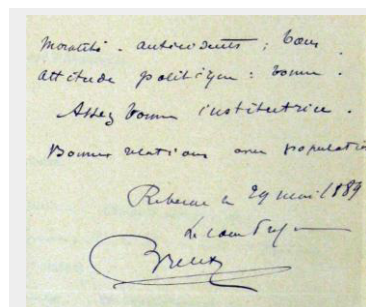 Moralité - antécédents : bons
attitude politique : bonne.
Assez bonne institutrice.
Bonnes relations avec population
le 29 mai 1889
Le sous Préf